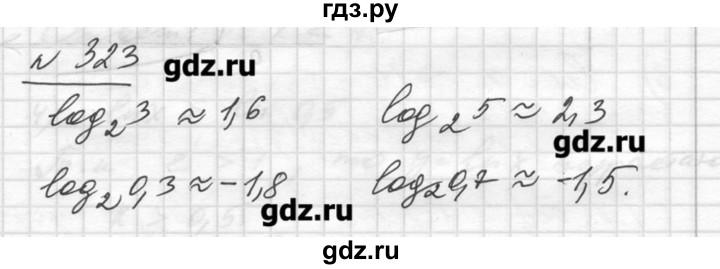 гдз.ру
№ 323
gdz.ru
log₂3 ≈ 1,6    log₂5 ≈ 2,3
gdz.ru
log₂0,3 ≈ -1,8    log₂0,7 ≈ -1,5.
gdz.ru
gdz.ru